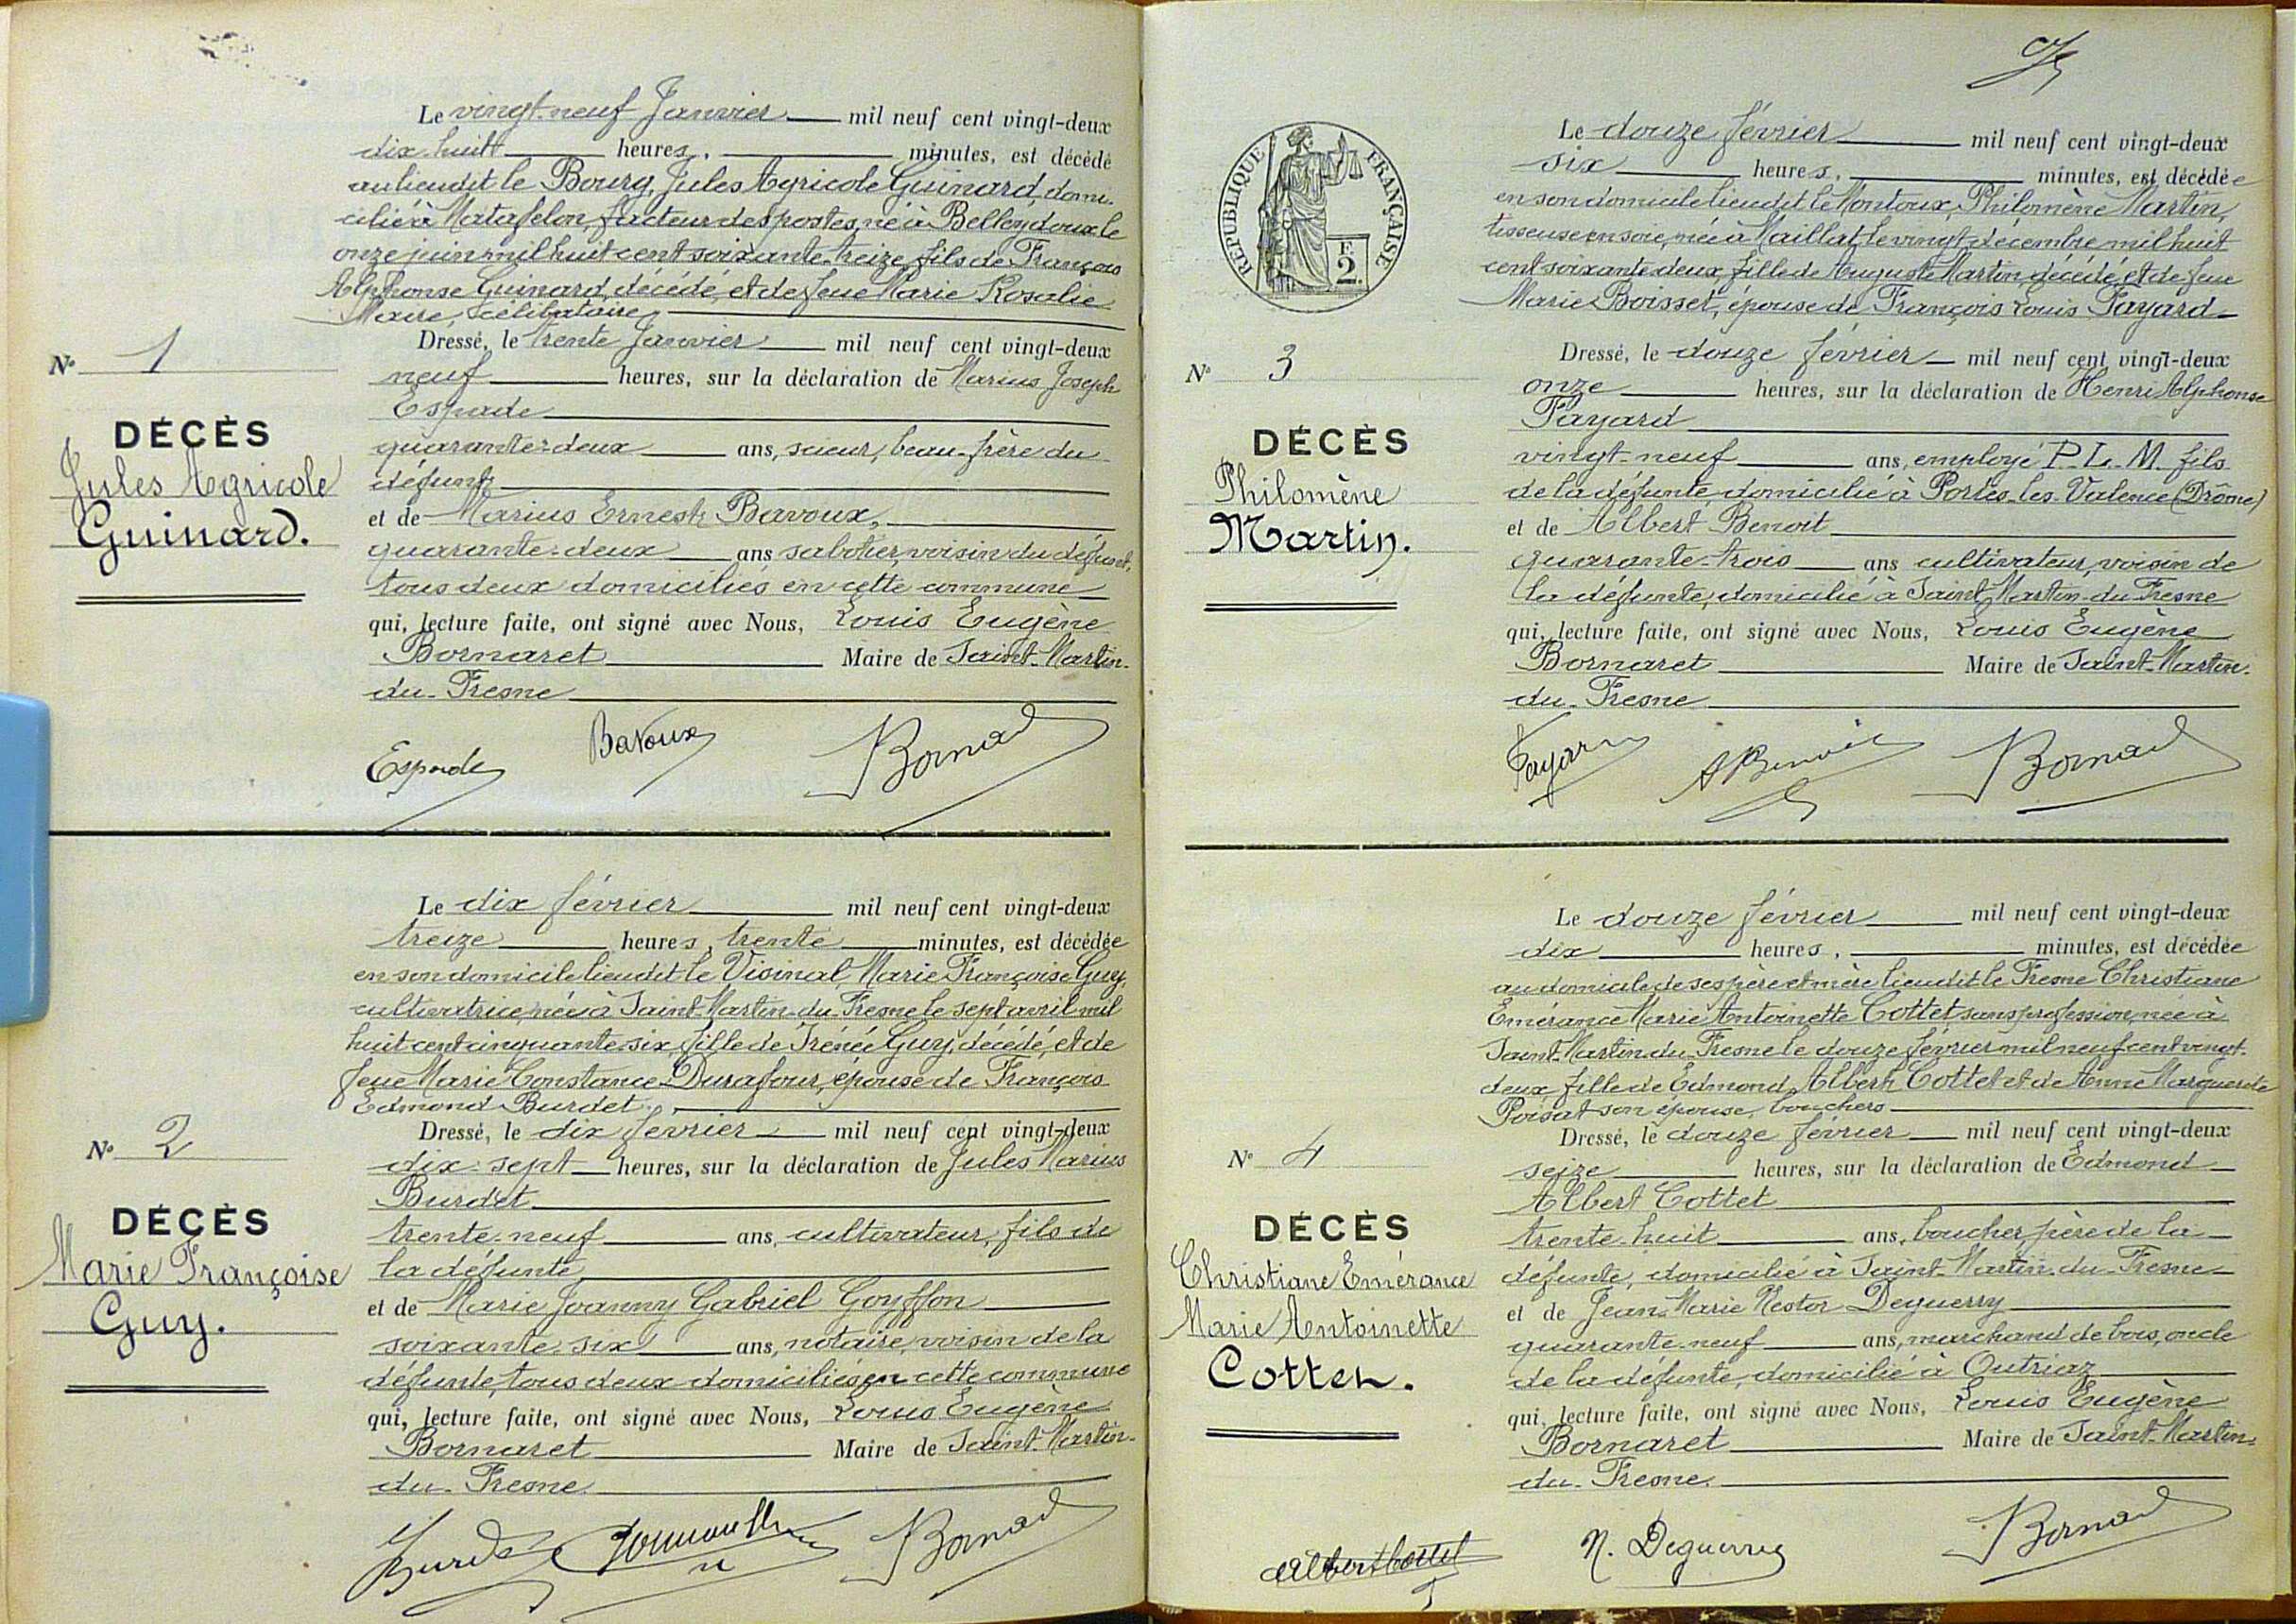 Le vingt-neuf Janvier mil neuf cent vingt-deux
dix-huit heures, minutes, est décédé
au lieu dit le Bourg, Jules Agricole Guinard, domi-
cilié à Matafelon, facteur des postes, né à Belleydoux le
onze juin mil huit cent soixante-treize, fils de François
Alphonse Guinard, décédé, et de feue Marie Rosalie
célibataire
Dressé, le trente Janvier mil neuf cent vingt-deux
neuf heures, sur la déclaration de Marius Joseph
Espade
quarante-deux ans, scieur, beau-frère du
défunt
et de Marius Ernest Bavoux,
quarante-deux ans sabotier, voisin du défunt,
tous deux domiciliés en cette commune
qui, lecture faite, ont signé avec Nous, Louis Eugène
Bornaret Maire de Saint-Martin-
du-Fresne
Espade Bavoux Bornaret
N° 1
DÉCÈS
Jules Agricole
Guinard.
Le dix février mil neuf cent vingt-deux
treize heures, trente minutes, est décédée
en son domicile lieu dit le Visinal, Marie Françoise Guy,
cultivatrice, née à Saint-Martin-du-Fresne le sept avril mil
huit cent cinquante-six, fille de Irénée Guy, décédé, et de
feue Marie Constance Durafour, épouse de François
Edmond Burdet.
Dressé, le dix février mil neuf cent vingt-deux
dix-sept heures, sur la déclaration de Jules Marius
Burdet
trente-neuf ans, cultivateur, fils de
la défunte
et de Marie Joanny Gabriel Goyffon
soixante-six ans, notaire, voisin de la
défunte, tous deux domiciliés en cette commune
qui, lecture faite, ont signé avec Nous, Louis Eugène
Bornaret Maire de Saint-Martin-
du-Fresne
Burdet Bornaret
N° 2
DÉCÈS
Marie Françoise
Guy.
RÉPUBLIQUE FRANÇAISE
2
Le douze février mil neuf cent vingt-deux
six heures, minutes, est décédée
en son domicile lieu dit le Montoux, Philomène Martin,
tisseuse en soie, née à Maillat, le vingt décembre mil huit
cent soixante deux, fille de Auguste Martin, décédé, et de feue
Marie Boisset, épouse de François Louis Fayard
Dressé, le douze février mil neuf cent vingt-deux
onze heures, sur la déclaration de Henri Alphonse
Fayard
vingt-neuf ans, employé P.L.M. fils
de la défunte domicilié à Portes-les-Valence (Drôme)
et de Albert Benoit
quarante-trois ans cultivateur, voisin de
la défunte, domicilié à Saint-Martin-du-Fresne
qui, lecture faite, ont signé avec Nous, Louis Eugène
Bornaret Maire de Saint-Martin-
du-Fresne
Fayard A Benoit Bornaret
N° 3
DÉCÈS
Philomène
Martin.
Le douze février mil neuf cent vingt-deux
dix heures, minutes, est décédée
au domicile de ses père et mère lieu dit le Fresne Christiane
Emérance Marie Antoinette Cottet, sans profession, née à
Saint-Martin-du-Fresne le douze février mil neuf cent vingt-
deux, fille de Edmond Albert Cottet et de Anne Marguerite
Poisat son épouse, bouchers
Dressé, le douze février mil neuf cent vingt-deux
seize heures, sur la déclaration de Edmond
Albert Cottet
trente-huit ans, boucher, père de la
défunte, domicilié à Saint-Martin-du-Fresne
et de Jean-Marie Nestor Deguerry
quarante-neuf ans, marchand de bois, oncle
de la défunte, domicilié à Outriaz
qui, lecture faite, ont signé avec Nous, Louis Eugène
Bornaret Maire de Saint-Martin-
du-Fresne.
Albert Cottet N. Deguerry Bornaret
N° 4
DÉCÈS
Christiane Emérance
Marie Antoinette
Cottet.